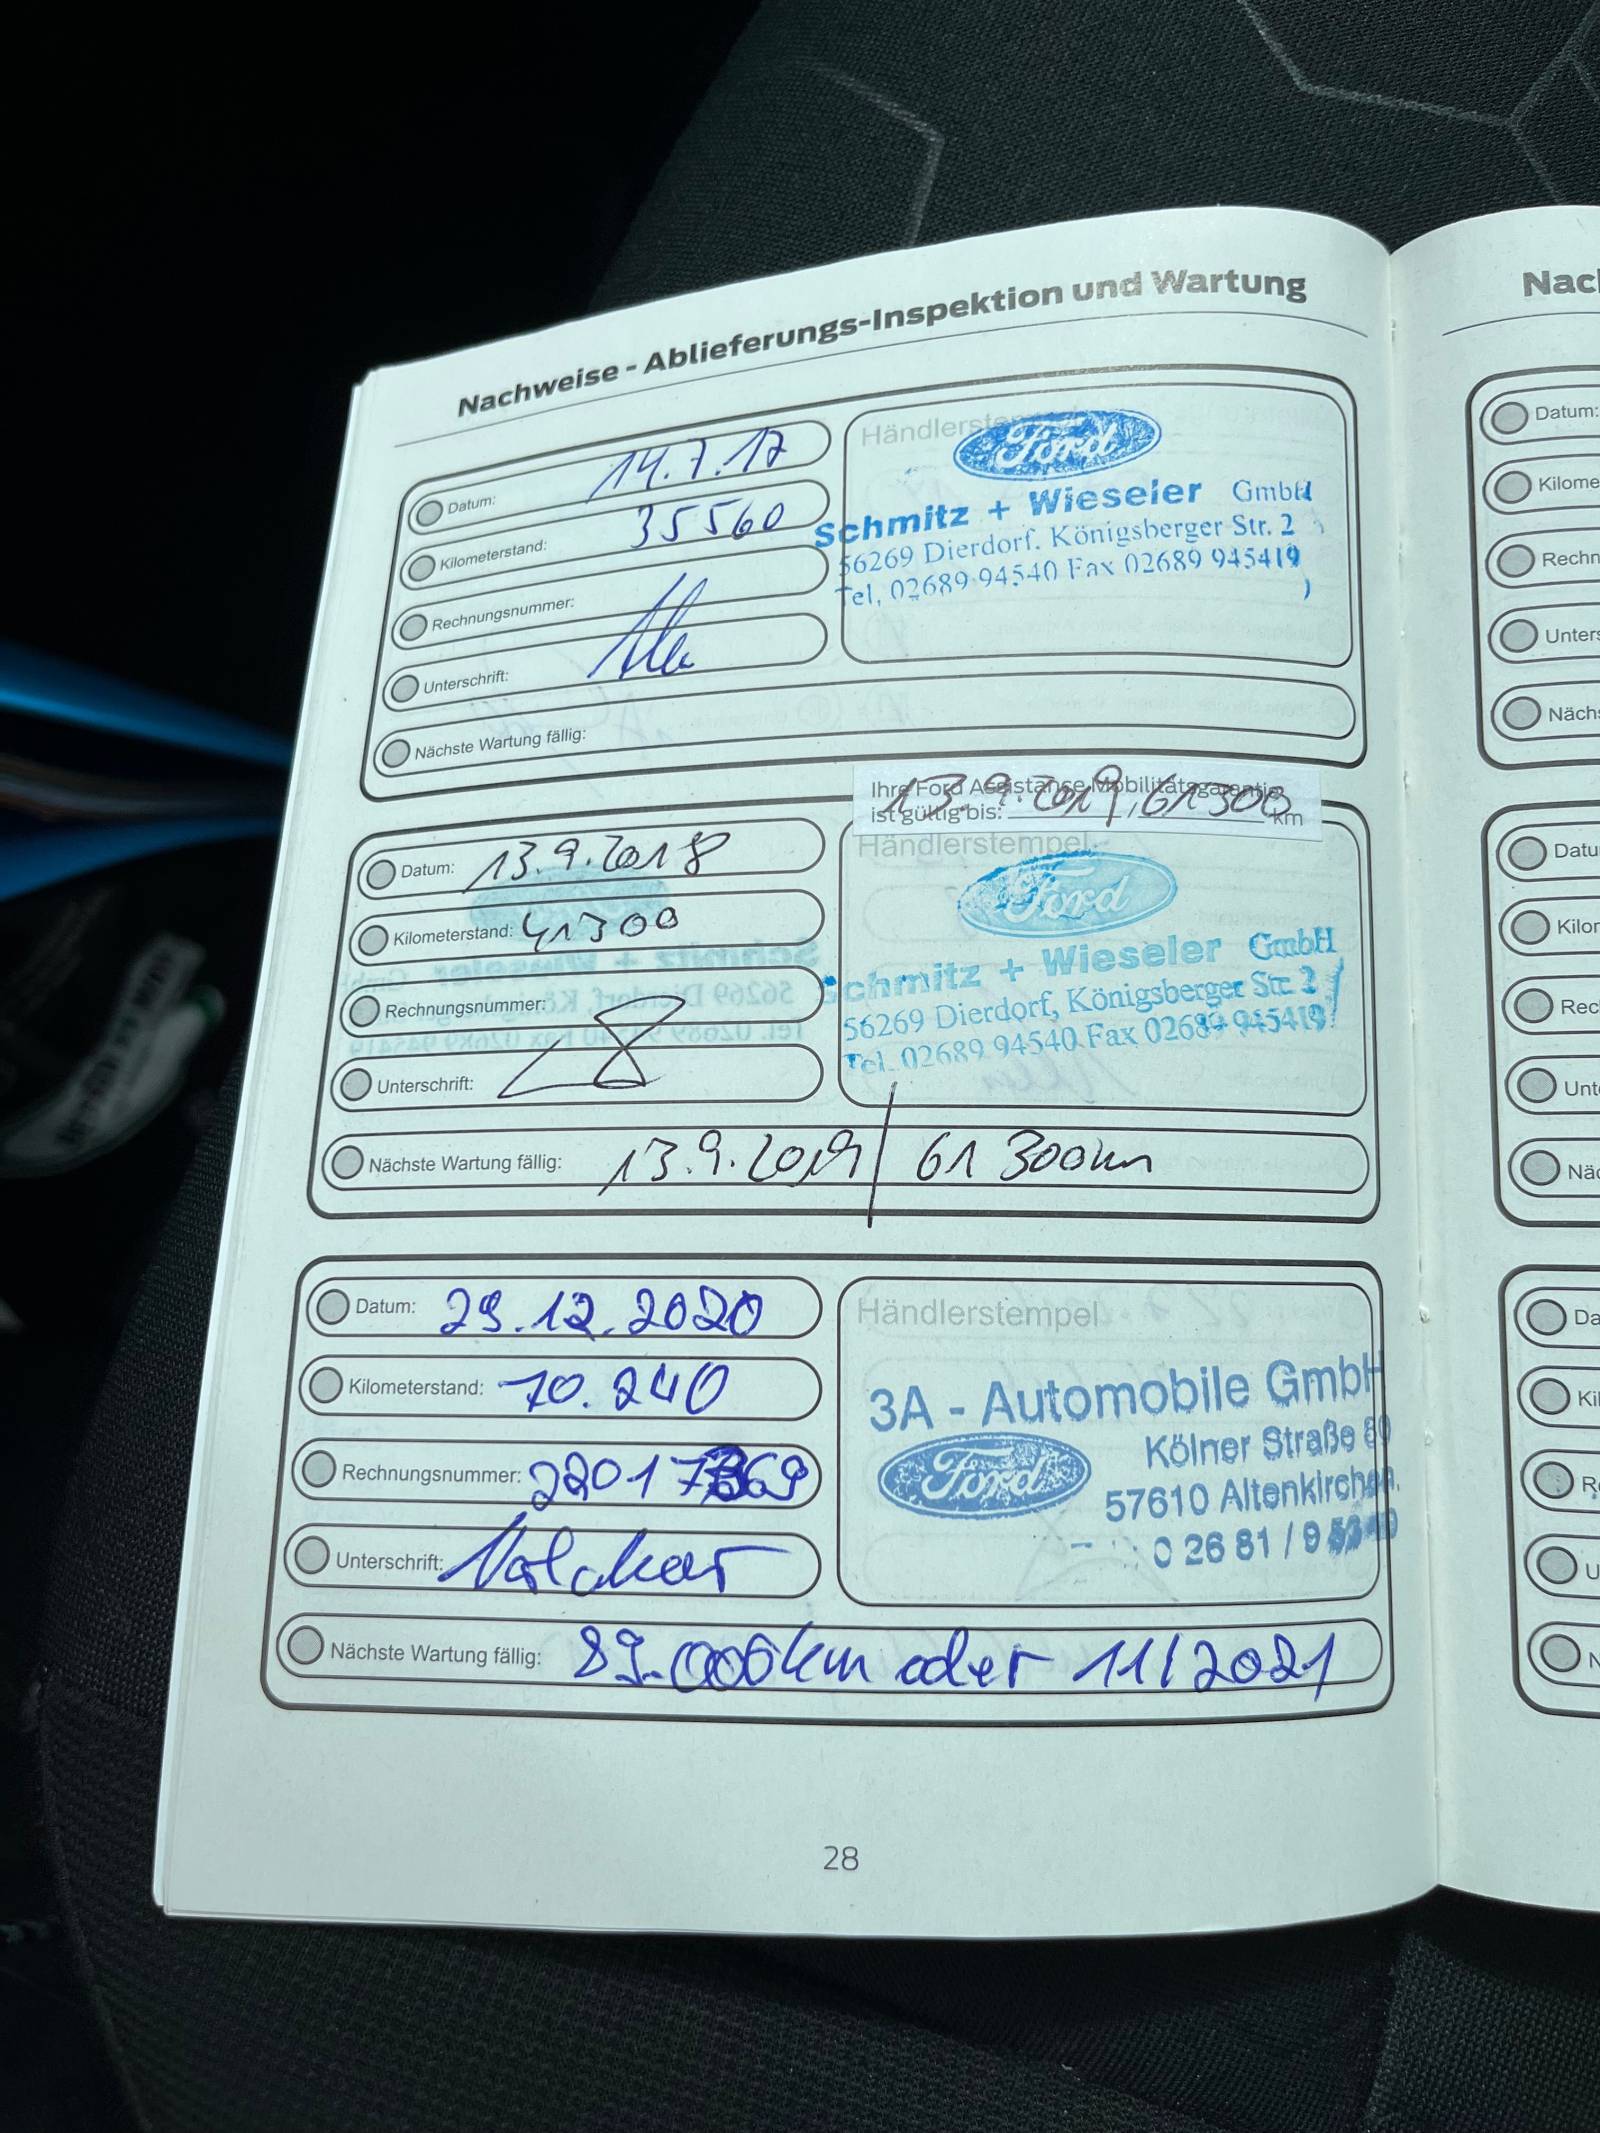 Nachweise - Ablieferungs-Inspektion und Wartung
Datum: 14.7.17
Kilometerstand: 35560
Rechnungsnummer:
Unterschrift:
Nächste Wartung fällig:
Händlerstempel
Ford
Schmitz + Wieseler GmbH
56269 Dierdorf. Königsberger Str. 2
Tel, 02689 94540 Fax 02689 945419
Ihre Ford Assistance Mobilitätsgarantie
ist gültig bis: 13.9.2019, 61300 km
Datum: 13.9.2018
Kilometerstand: 41300
Rechnungsnummer:
Unterschrift:
Händlerstempel
Ford
Schmitz + Wieseler GmbH
56269 Dierdorf, Königsberger Str. 2
Tel. 02689 94540 Fax 02689 945419
Nächste Wartung fällig: 13.9.2019 / 61 300km
Datum: 29.12.2020
Kilometerstand: 70.240
Rechnungsnummer:
Unterschrift:
Händlerstempel
3A - Automobile GmbH
Ford
Kölner Straße
57610 Altenkirchen
0 26 81 / 9
Nächste Wartung fällig: 89.000km oder 11/2021
28
Datum: